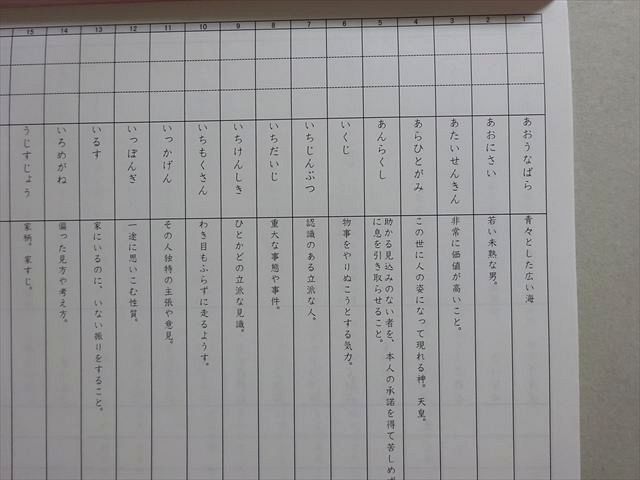 1
あおうなばら
青々とした広い海
2
あおにさい
若い未熟な男。
3
あたいせんきん
非常に価値が高いこと。
4
あらひとがみ
この世に人の姿になって現れる神。天皇。
5
あんらくし
助かる見込みのない者を、本人の承諾を得て苦しめず
に息を引き取らせること。
6
いくじ
物事をやりぬこうとする気力。
7
いちじんぶつ
認識のある立派な人。
8
いちだいじ
重大な事態や事件。
9
いちけんしき
ひとかどの立派な見識。
10
いちもくさん
わき目もふらずに走るようす。
11
いっかげん
その人独特の主張や意見。
12
いっぽんぎ
一途に思いこむ性質。
13
いるす
家にいるのに、いない振りをすること。
14
いろめがね
偏った見方や考え方。
15
うじすじょう
家柄。家すじ。